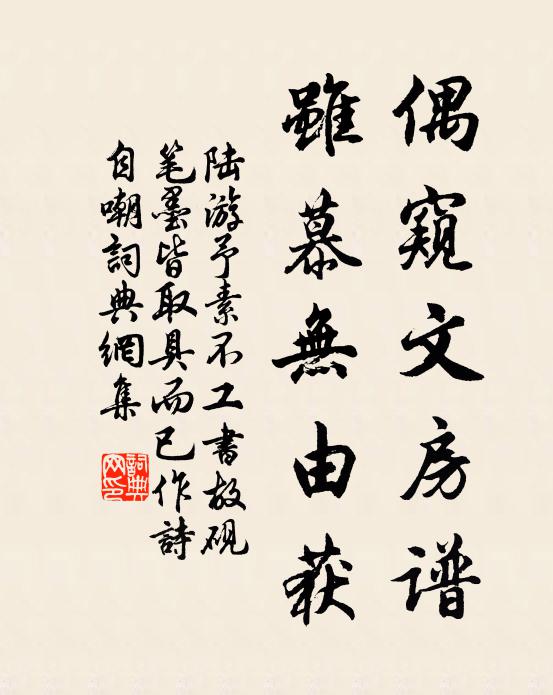 偶窺文房谱
雖慕無由获
陆游予素不工書故砚
笔墨皆取具而已作詩
自嘲詞典網集
詞典
网印